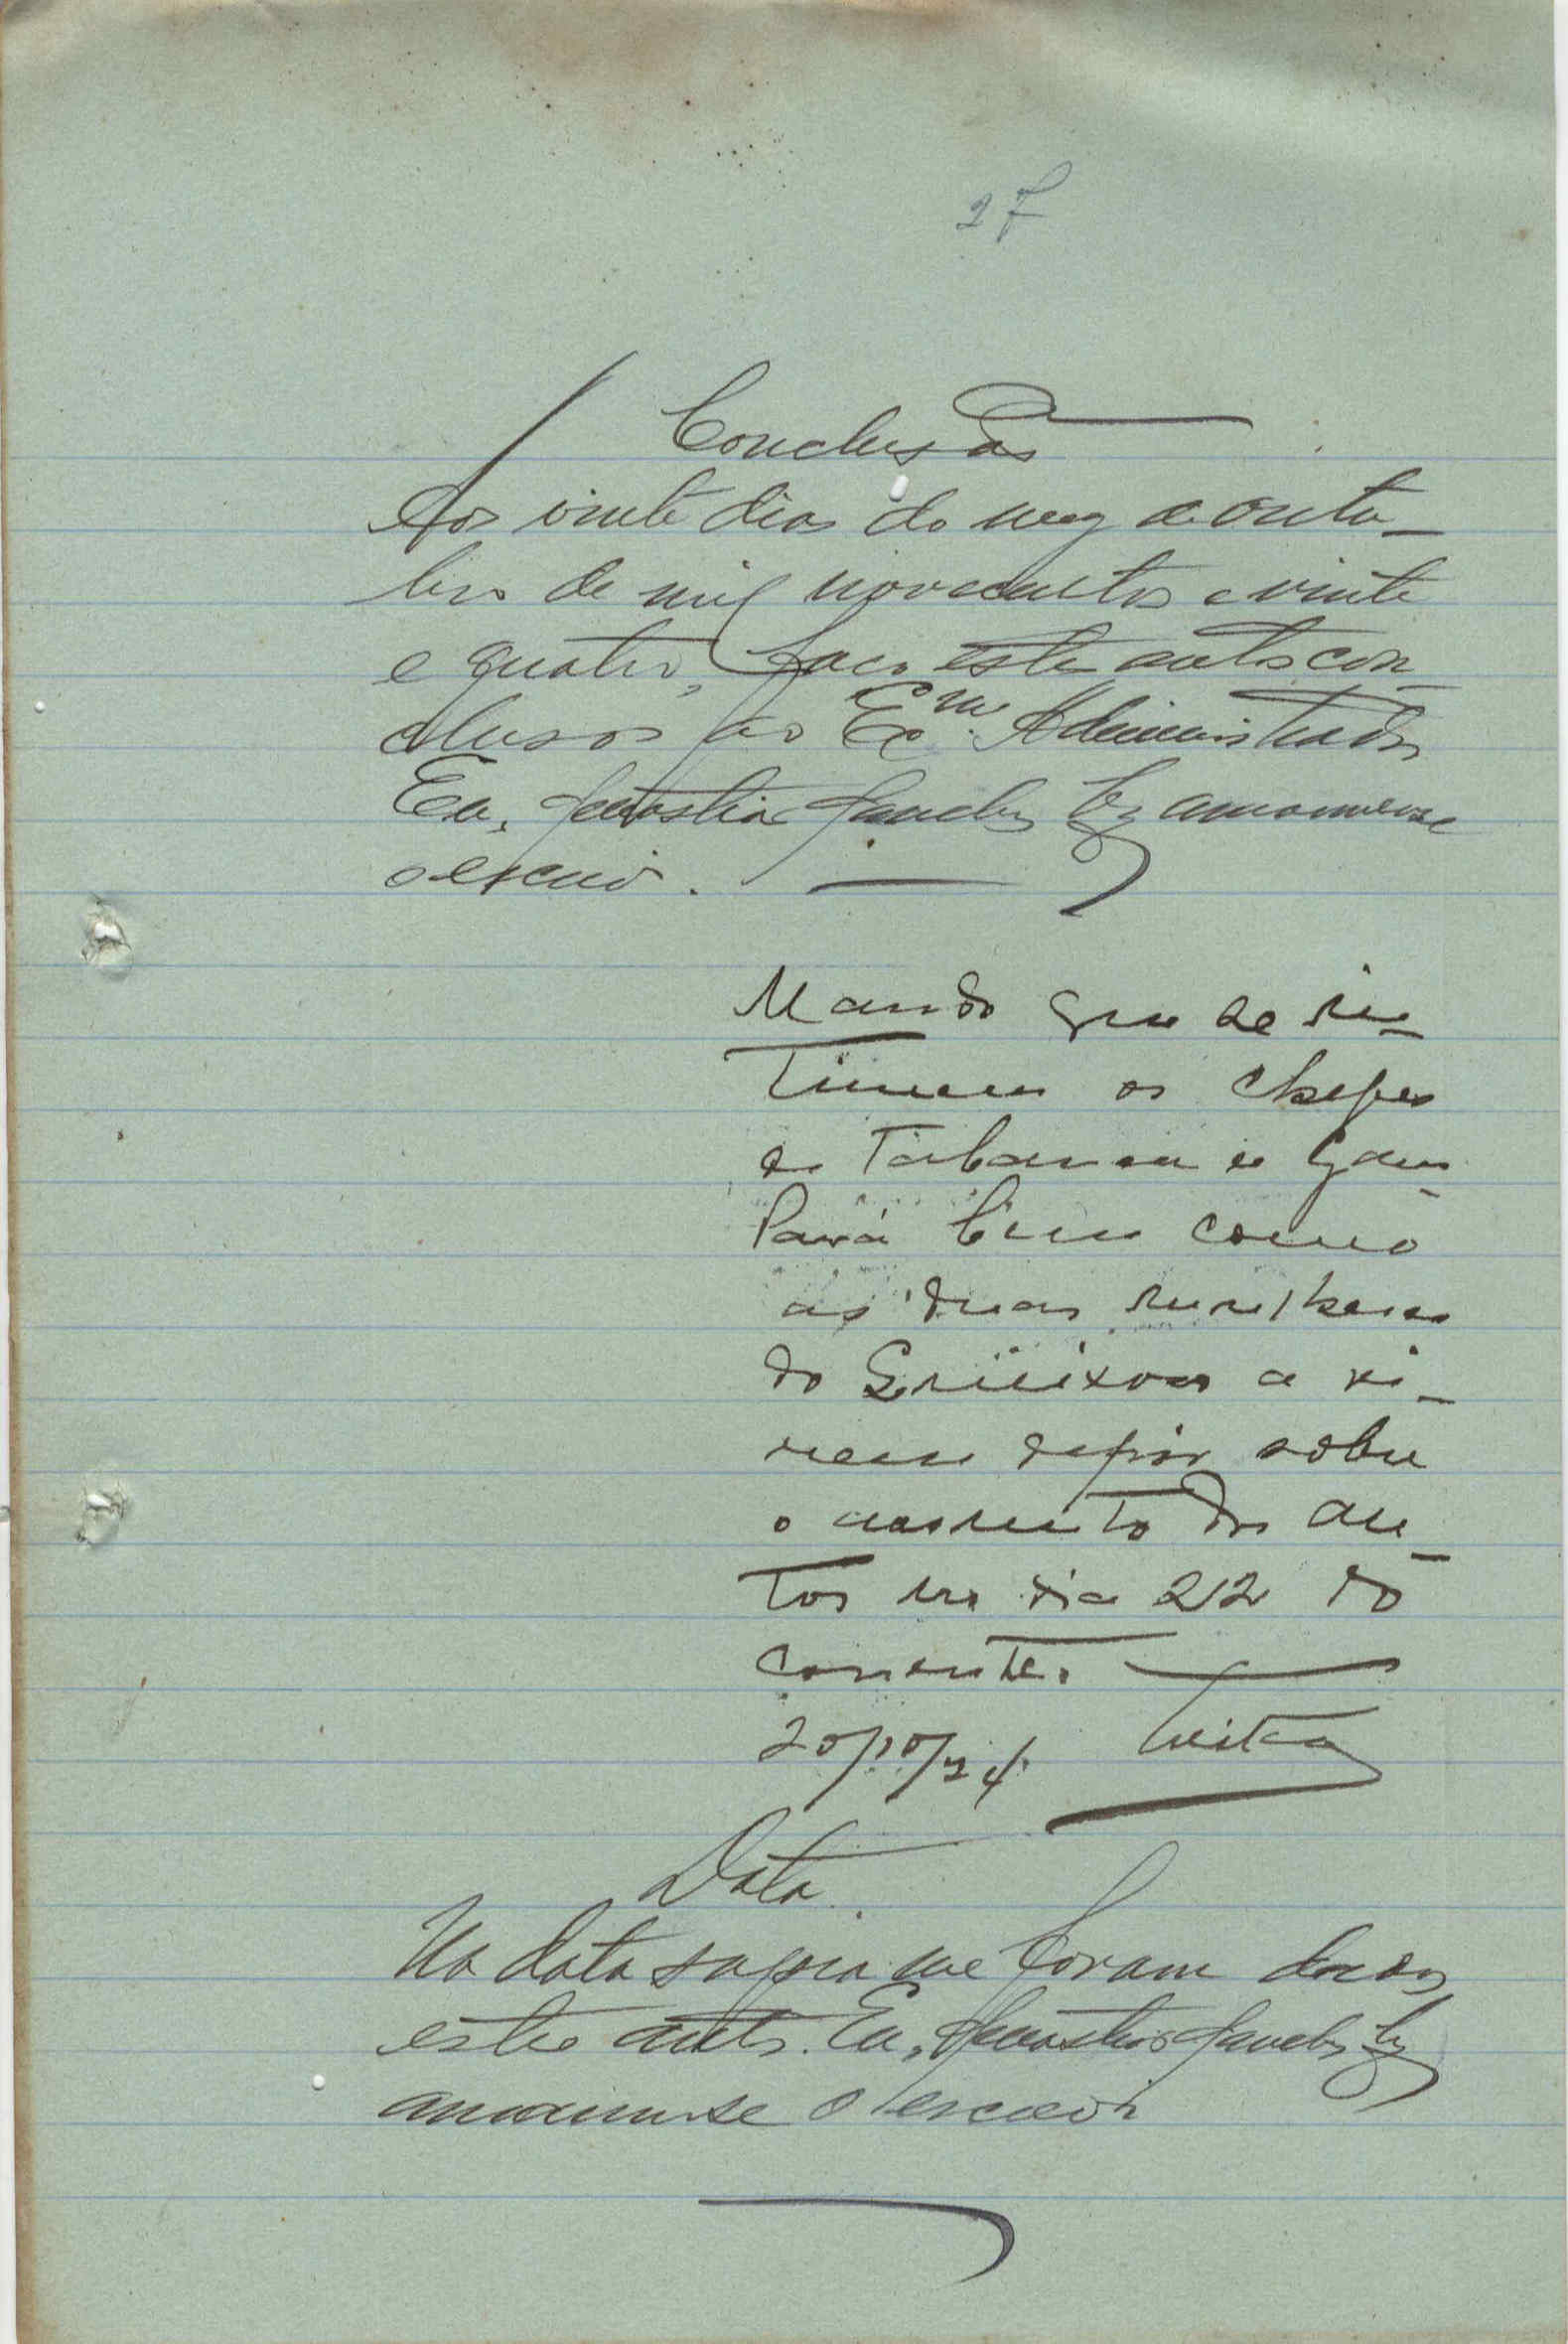 27
Conclusão
Aos vinte dias do mez de outu-
bro de mil novecentos e vinte
e quatro, faço estes autos con-
clusos ao Exmo. Administrador
Eu, amanuense
o escrevi.
Mando que se in-
timem os chefes
de Tabanca e Gam-
Pará bem como
as duas mulheres
do a vi-
rem depôr sobre
o assunto dos au-
tos no dia 22 do
corrente.
20/10/24.
Data
Na data supra me foram dados
estes autos. Eu,
amanuense o escrevi